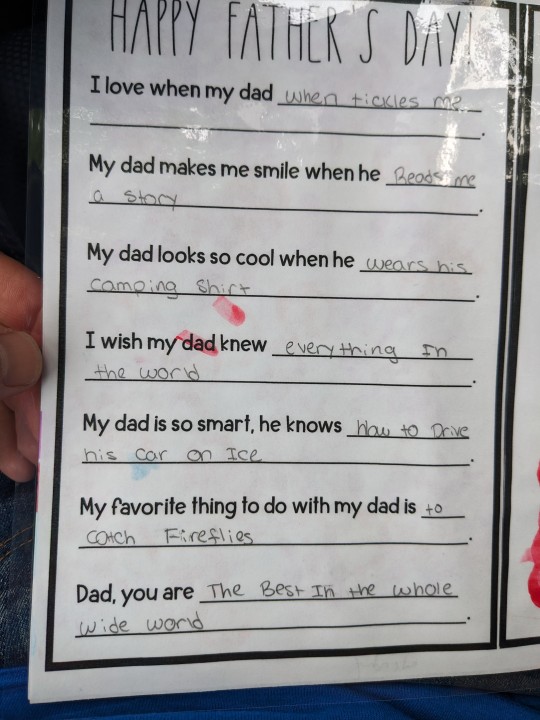 HAPPY FATHER'S DAY!
I love when my dad when tickles me
.
My dad makes me smile when he Reads me
a story .
My dad looks so cool when he wears his
camping shirt .
I wish my dad knew everything In
the world .
My dad is so smart, he knows how to Drive
his car on Ice .
My favorite thing to do with my dad is to
catch Fireflies .
Dad, you are The Best In the whole
wide world .